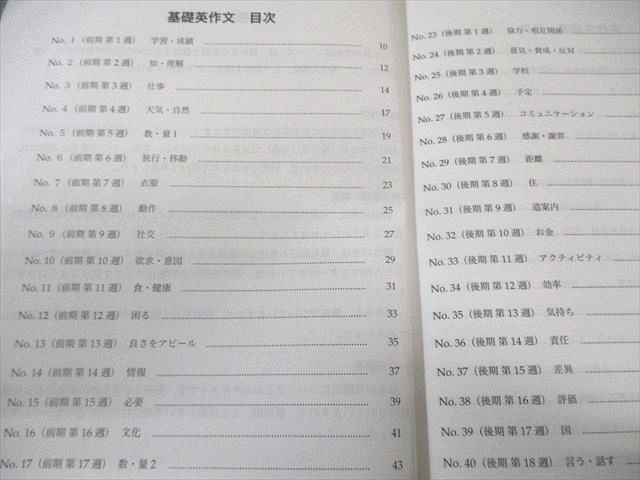 基礎英作文 目次
No. 1 (前期 第1週) 学習・成績 10
No. 2 (前期 第2週) 知・理解 12
No. 3 (前期 第3週) 仕事 14
No. 4 (前期 第4週) 天気・自然 17
No. 5 (前期 第5週) 数・量1 19
No. 6 (前期 第6週) 旅行・移動 21
No. 7 (前期 第7週) 衣服 23
No. 8 (前期 第8週) 動作 25
No. 9 (前期 第9週) 社交 27
No. 10 (前期 第10週) 欲求・意図 29
No. 11 (前期 第11週) 食・健康 31
No. 12 (前期 第12週) 困る 33
No. 13 (前期 第13週) 良さをアピール 35
No. 14 (前期 第14週) 情報 37
No. 15 (前期 第15週) 必要 39
No. 16 (前期 第16週) 文化 41
No. 17 (前期 第17週) 数・量2 43
No. 23 (後期 第1週) 協力・相互関係
No. 24 (後期 第2週) 意見・賛成・反対
No. 25 (後期 第3週) 学校
No. 26 (後期 第4週) 予定
No. 27 (後期 第5週) コミュニケーション
No. 28 (後期 第6週) 感謝・謝罪
No. 29 (後期 第7週) 距離
No. 30 (後期 第8週) 住
No. 31 (後期 第9週) 道案内
No. 32 (後期 第10週) お金
No. 33 (後期 第11週) アクティビティ
No. 34 (後期 第12週) 効率
No. 35 (後期 第13週) 気持ち
No. 36 (後期 第14週) 責任
No. 37 (後期 第15週) 差異
No. 38 (後期 第16週) 評価
No. 39 (後期 第17週) 国
No. 40 (後期 第18週) 言う・話す